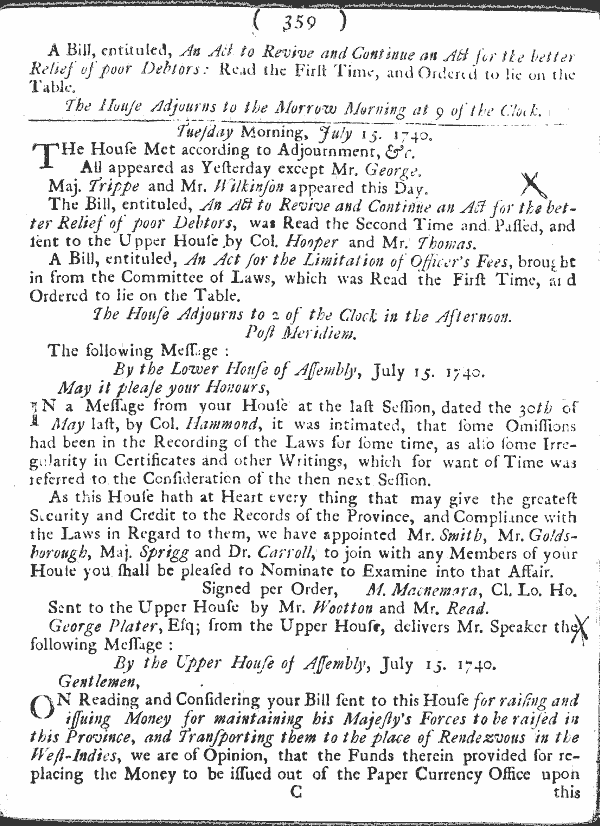 ( 359 )
A Bill, entituled, An Act to Revive and Continue an Act for the better
Relief of poor Debtors: Read the Firſt Time, and Ordered to lie on the
Table.
The Houſe Adjourns to the Morrow Morning at 9 of the Clock.
Tueſday Morning, July 15. 1740.
THe Houſe Met according to Adjournment, &c.
All appeared as Yeſterday except Mr. George.
Maj. Trippe and Mr. Wilkinſon appeared this Day.
The Bill, entituled, An Act to Revive and Continue an Act for the bet-
ter Relief of poor Debtors, was Read the Second Time and Paſſed, and
ſent to the Upper Houſe by Col. Hooper and Mr. Thomas.
A Bill, entituled, An Act for the Limitation of Officer's Fees, brought
in from the Committee of Laws, which was Read the Firſt Time, and
Ordered to lie on the Table.
The Houſe Adjourns to 2 of the Clock in the Afternoon.
Poſt Meridiem.
The following Meſſage :
By the Lower Houſe of Aſſembly, July 15. 1740.
May it pleaſe your Honours,
IN a Meſſage from your Houſe at the laſt Seſſion, dated the 30th of
May laſt, by Col. Hammond, it was intimated, that ſome Omiſſions
had been in the Recording of the Laws for ſome time, as alſo ſome Irre-
gularity in Certificates and other Writings, which for want of Time was
referred to the Conſideration of the then next Seſſion.
As this Houſe hath at Heart every thing that may give the greateſt
Security and Credit to the Records of the Province, and Compliance with
the Laws in Regard to them, we have appointed Mr. Smith, Mr. Golds-
borough, Maj. Sprigg and Dr. Carroll, to join with any Members of your
Houſe you ſhall be pleaſed to Nominate to Examine into that Affair.
Signed per Order, M. Macnemara, Cl. Lo. Ho.
Sent to the Upper Houſe by Mr. Wootton and Mr. Read.
George Plater, Eſq; from the Upper Houſe, delivers Mr. Speaker the
following Meſſage :
By the Upper Houſe of Aſſembly, July 15. 1740.
Gentlemen,
ON Reading and Conſidering your Bill ſent to this Houſe for raiſing and
iſſuing Money for maintaining his Majeſty's Forces to be raiſed in
this Province, and Tranſporting them to the place of Rendezvous in the
Weſt-Indies, we are of Opinion, that the Funds therein provided for re-
placing the Money to be iſſued out of the Paper Currency Office upon
C this